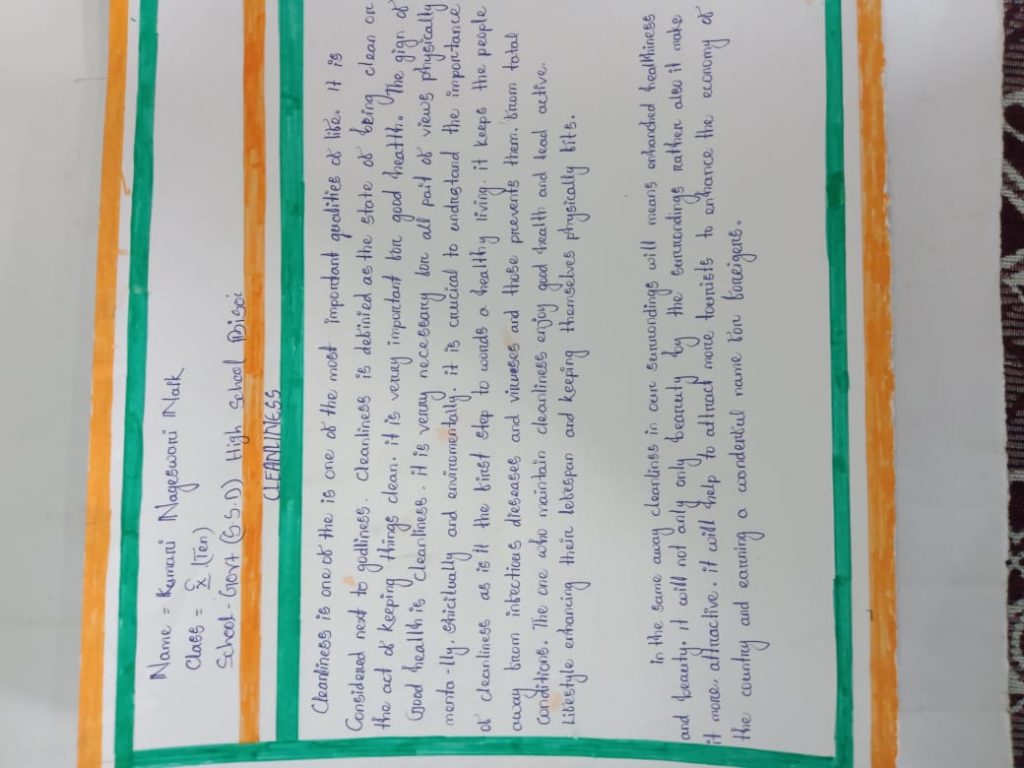 Name = Kumari Nageswari Naik
Class = X (Ten)
School - Govt (S.S.D) High School Bisoi
CLEANLINESS
Cleanliness is one of the is one of the most important qualities of life. It is
Considered next to godliness. Cleanliness is definied as the state of being clean or
the act of keeping things clean. it is verry important for good health. The gign of
Good health is cleanliness. it is verry necessary for all pait of views physically
menta-lly, shicitually and enviromentally. it is crucial to undrstand the importance
of cleanliness as is it the first step to words a healthy living. it keeps the people
away from infectious dieseases and viruses and those prevents them. from total
conditions. The one who maintain cleanliness enjoy good health and lead active.
Lifestyle enhancing their lefespan and keeping themselves physically fits.
in the same away cleanliness in our surrondings will means enhanched healthiness
and beauty. it will not only only beauty by the surrordings rather also it make
it more. attractive. it will help to attract more tourists to enhance the economy of
the country and earning a wonderful name for foreigens.